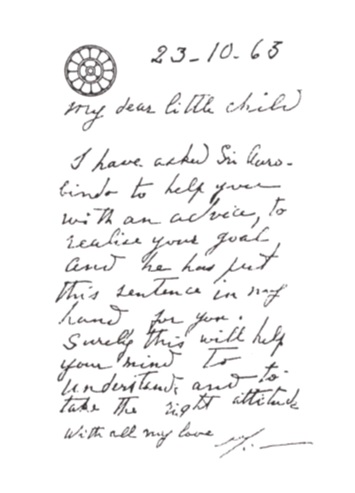 23-10-63
My dear little child
I have asked Sri Auro-
bindo to help you
with an advice, to
realise your goal
and he has put
this sentence in my
hand for you.
Surely this will help
your mind to
understand, and to
take the right attitude
With all my love